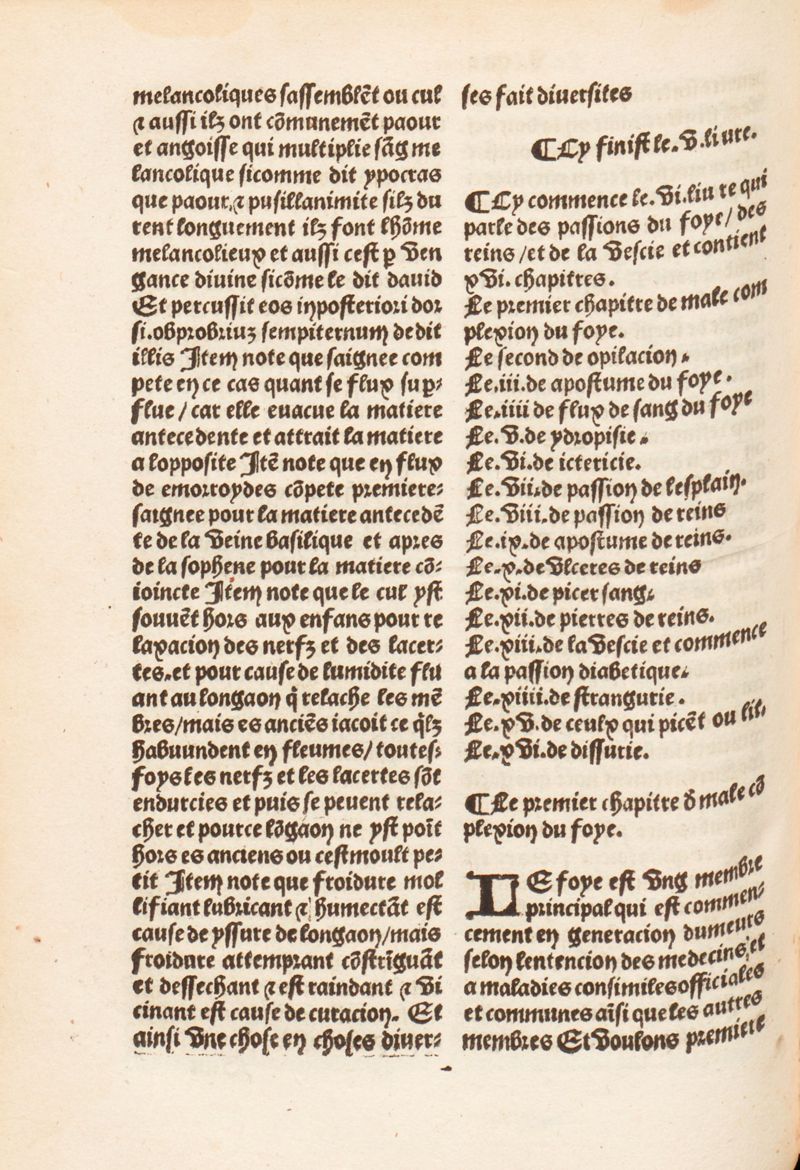 melancoliques sassemblẽt ou cul
⁊ aussi ilz ont cõmunemẽt paour
et angoisse qui multiplie sãg me
lancolique sicomme dit ypocras
que paour,⁊ pusillanimite silz du
rent longuement ilz font lhõme
melancolieux et aussi cest ꝑ ven
gance divine sicõme le dit david
Et percussit eos in posteriori dor
si.obprobriuz sempiternum dedit
illis Item note que saignee com
pete en ce cas quant se flux suꝑ-
flue / car elle evacue la matiere
antecedente et attrait la matiere
a lopposite Itẽ note que en flux
de emorroydes cõpete premiere-
saignee pour la matiere antecedẽ
te de la veine basilique et apres
de la sophene pour la matiere cõ-
ioincte Item note que le cul yst
souvẽt hors aux enfans pour re
laxacion des nerfz et des lacer-
tes.et pour cause de lumidite flu
ant au longaon q̃ relache les mẽ
bres/mais es anciẽs iacoit ce q̃lz
habuundent en fleumes/toutes-
foys les nerfz et les lacertes sõt
endurcies et puis se pevent rela-
cher et pource lõgaon ne yst poĩt
hors es anciens ou cest moult pe-
tit Item note que froidure mol
lifiant lubricant ⁊ humectãt est
cause de yssure de longaon/mais
froidure attemprant cõstrĩguãt
et dessechant ⁊ estraindant ⁊ vi
cinant est cause de curacion. Et
ainsi vne chose en choses diver-
ses fait diversites
¶Cy finist le.v.livre.
¶Cy commence le.vi.livre qui
parle des passions du foye/des
reins/et de la vescie et contient
xvi. chapitres.
Le premier chapitre de male com
plexion du foye.
Le second de opilacion.
Le.iii.de apostume du foye.
Le.iiii de flux de sang du foye
Le.v.de ydropisie.
Le.vi.de ictericie.
Le.vii.de passion de lesplain.
Le.viii.de passion de reins
Le.ix.de apostume de reins.
Le.x.de vlceres de reins
Le.xi.de picer sang.
Le.xii.de pierres de reins.
Le.xiii.de la vescie et commence
a la passion diabetique.
Le.xiiii.de strangurie.
Le.xv.de ceulx qui picẽt ou lit.
Le.xvi.de dissurie.
¶Le premier chapitre đ male cõ
plexion du foye.
LE foye est vng membre
principal qui est commen-
cement en generacion dumeurs
selon lentencion des medecins,et
a maladies consimiles officiales
et communes aĩsi que les autres
membres Et voulons premiere